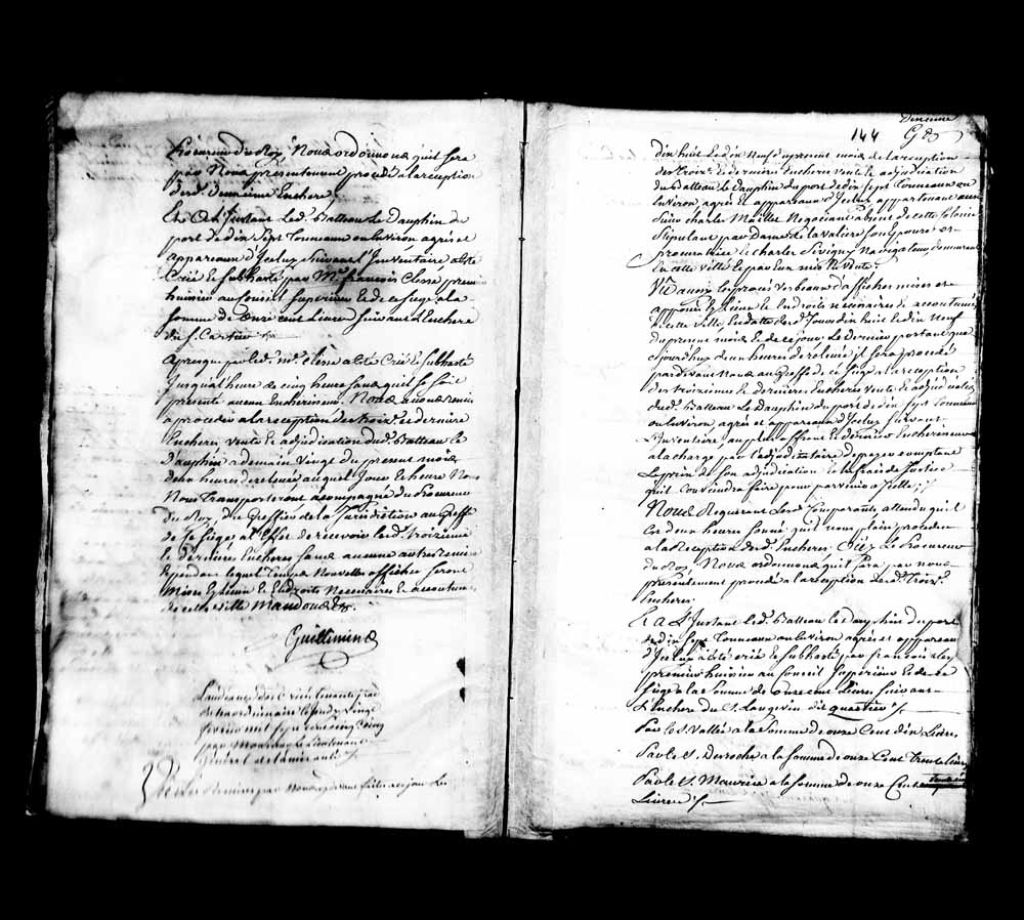 Procureur du Roy, Nous ordonnons quil sera
par Nous presentement procedé a la reception
desd. deuxieme Enchere,
Et a L'Instant led. Batteau Le Dauphin du
port de dix Sept Tonneaux ou Environ agrès et
apparaux d'Iceluy suivant L'inventaire a été
Crié et subhasté par Me. françois Clessé premier
huissier au Conseil Superieur et de ce Siege a la
somme de onze cent Livres suivant L'Enchere
du s. Cartier
Apres que par led. me. Clessé a été Crié et subhasté
jusqua l'heure de cinq heures sans quil se soit
presenté aucun Encherisseur. Nous avons remis
a proceder a la reception des trois. et derniere
Encheres, vente et adjudication dud. Batteau le
Dauphin a demain vingt du present mois
deux heures de relevée, auquel Jour et heure Nous
Nous Transporterons accompagné du Procureur
du Roy, du Greffier de la Jurisdiction au Greffe
de ce Siege a L'Effet de recevoir lesd. troisieme
et Dernieres Encheres sans aucune autre remise
Et pendant lequel Temps Nouvelles affiches seront
Mises Es Lieux et Endroits Necessaires et accoutumés
de cette Ville Mandons &c.
Guillimin
L'audience
Extraordinaire Le Jeudy Vingt
mil Sept cent cinq
par Monsieur Le Lieutenant
General
144
dix huit et dix Neuf du present mois de la reception
des trois. et derniere Encheres vente et adjudication
du Batteau Le Dauphin du port de dix Sept Tonneaux ou
Environ, agrès et apparaux d'Iceluy appartenant au
Sieur charles Maillet Negociant absent de cette Colonie
Stipulant par Dame de la Valiere son Epouse et
procuratrice et Charles Sivigny Navigateur, demeurant
En cette Ville et par Eux mis En Vente.
Vû aussy les procès Verbaux d'affiches mises et
apposées Es Lieux et Endroits necessaires et accoutumés
de cette Ville, En datte desd. Jours dix huit et dix Neuf
du present mois et de ce jour. Le Dernier portant que
Cejourdhuy deux heures de relevée il sera procedé
par Devant Nous au Greffe de ce Siege a la reception
des troisieme et dernieres Encheres Vente et adjudication
dud. Batteau Le Dauphin du port de dix Sept Tonneaux
ou Environ, agrès et apparaux d'Iceluy suivant
L'Inventaire au plus offrant et dernier Encherisseur
a la charge par L'adjudicataire de payer comptant
Le prix de son adjudication et les frais de Justice
quil Conviendra faire pour parvenir a Icelle;
Nous Requerant Lesd. Comparants, attendu quil
Est deux heures sonné quil nous plaise proceder
a la Reception desd. Encheres. Oüy Le Procureur
du Roy, Nous ordonnons quil sera par nous
presentement procedé a la reception desd. Trois.
Encheres.
Et a L'Instant led. Batteau Le dauphin du port
de dix Sept Tonneaux ou Environ agrès et apparaux
d'Iceluy a été crié et subhasté par françois Clessé
premier huissier au Conseil Superieur et de ce
Siege a la Somme de onze cent Livres suivant
L'Enchere du S. Langevin dit quartier
Par le S. Vallée a la Somme de onze Cent dix Livres
Par le S. Derroche a la Somme de onze Cent Trente Livres
Par le S. Maurice a la somme de onze Cent
Livres